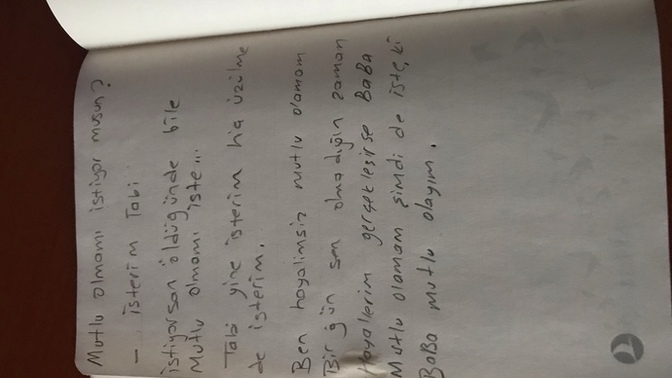 Mutlu olmamı istiyor musun?
— isterim Tabi
istiyorsan öldüğünde bile
Mutlu olmamı iste...
Tabi yine isterim hia üzülme
de isterim.
Ben hayalimsiz mutlu olamam
Bir gün sen olmadığın zaman
Hayallerim gerçekleşirse BaBa
Mutlu olamam şimdi de iste, ki
BaBa mutlu olayım.